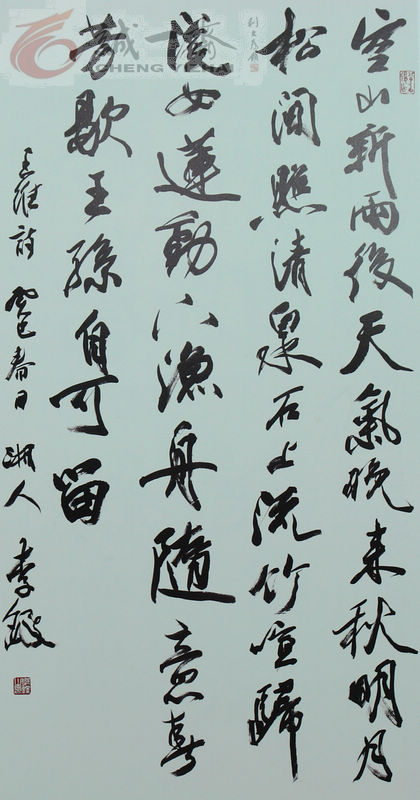 空山新雨後天氣晚来秋明月
松間照清泉石上流竹喧歸
浣女蓮動下漁舟隨意春
芳歇王孫自可留
王維詩 癸巳春日 湘人 李
誠一齋
CHENG YI ZHAI